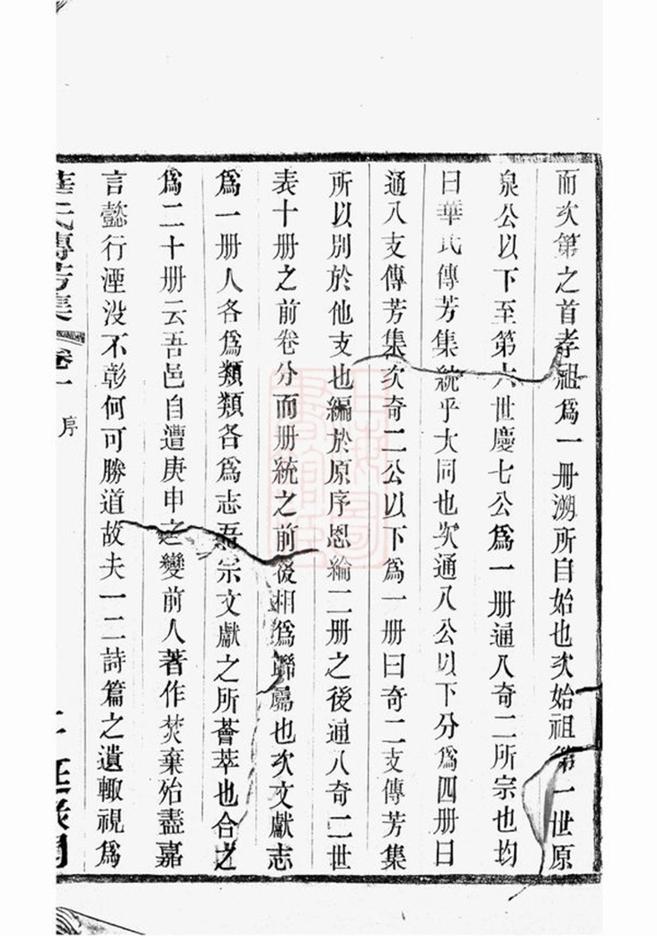 而次第之首孝祖爲一册溯所自始也次始祖第一世原
泉公以下至第六世慶七公爲一册通八奇二所宗也均
曰華氏傳芳集統乎大同也次通八公以下分爲四册曰
通八支傳芳集次奇二公以下爲一册曰奇二支傳芳集
所以别於他支也編於原序恩綸二册之後通八奇二世
表十册之前卷分而册統之前後相爲聯屬也次文獻志
爲一册人各爲類類各爲志吾宗文獻之所薈萃也合之
爲二十册云吾邑自遭庚申之變前人著作焚棄殆盡嘉
言懿行湮没不彰何可勝道故夫一二詩篇之遺輙視爲
華氏傳芳集 卷一 序